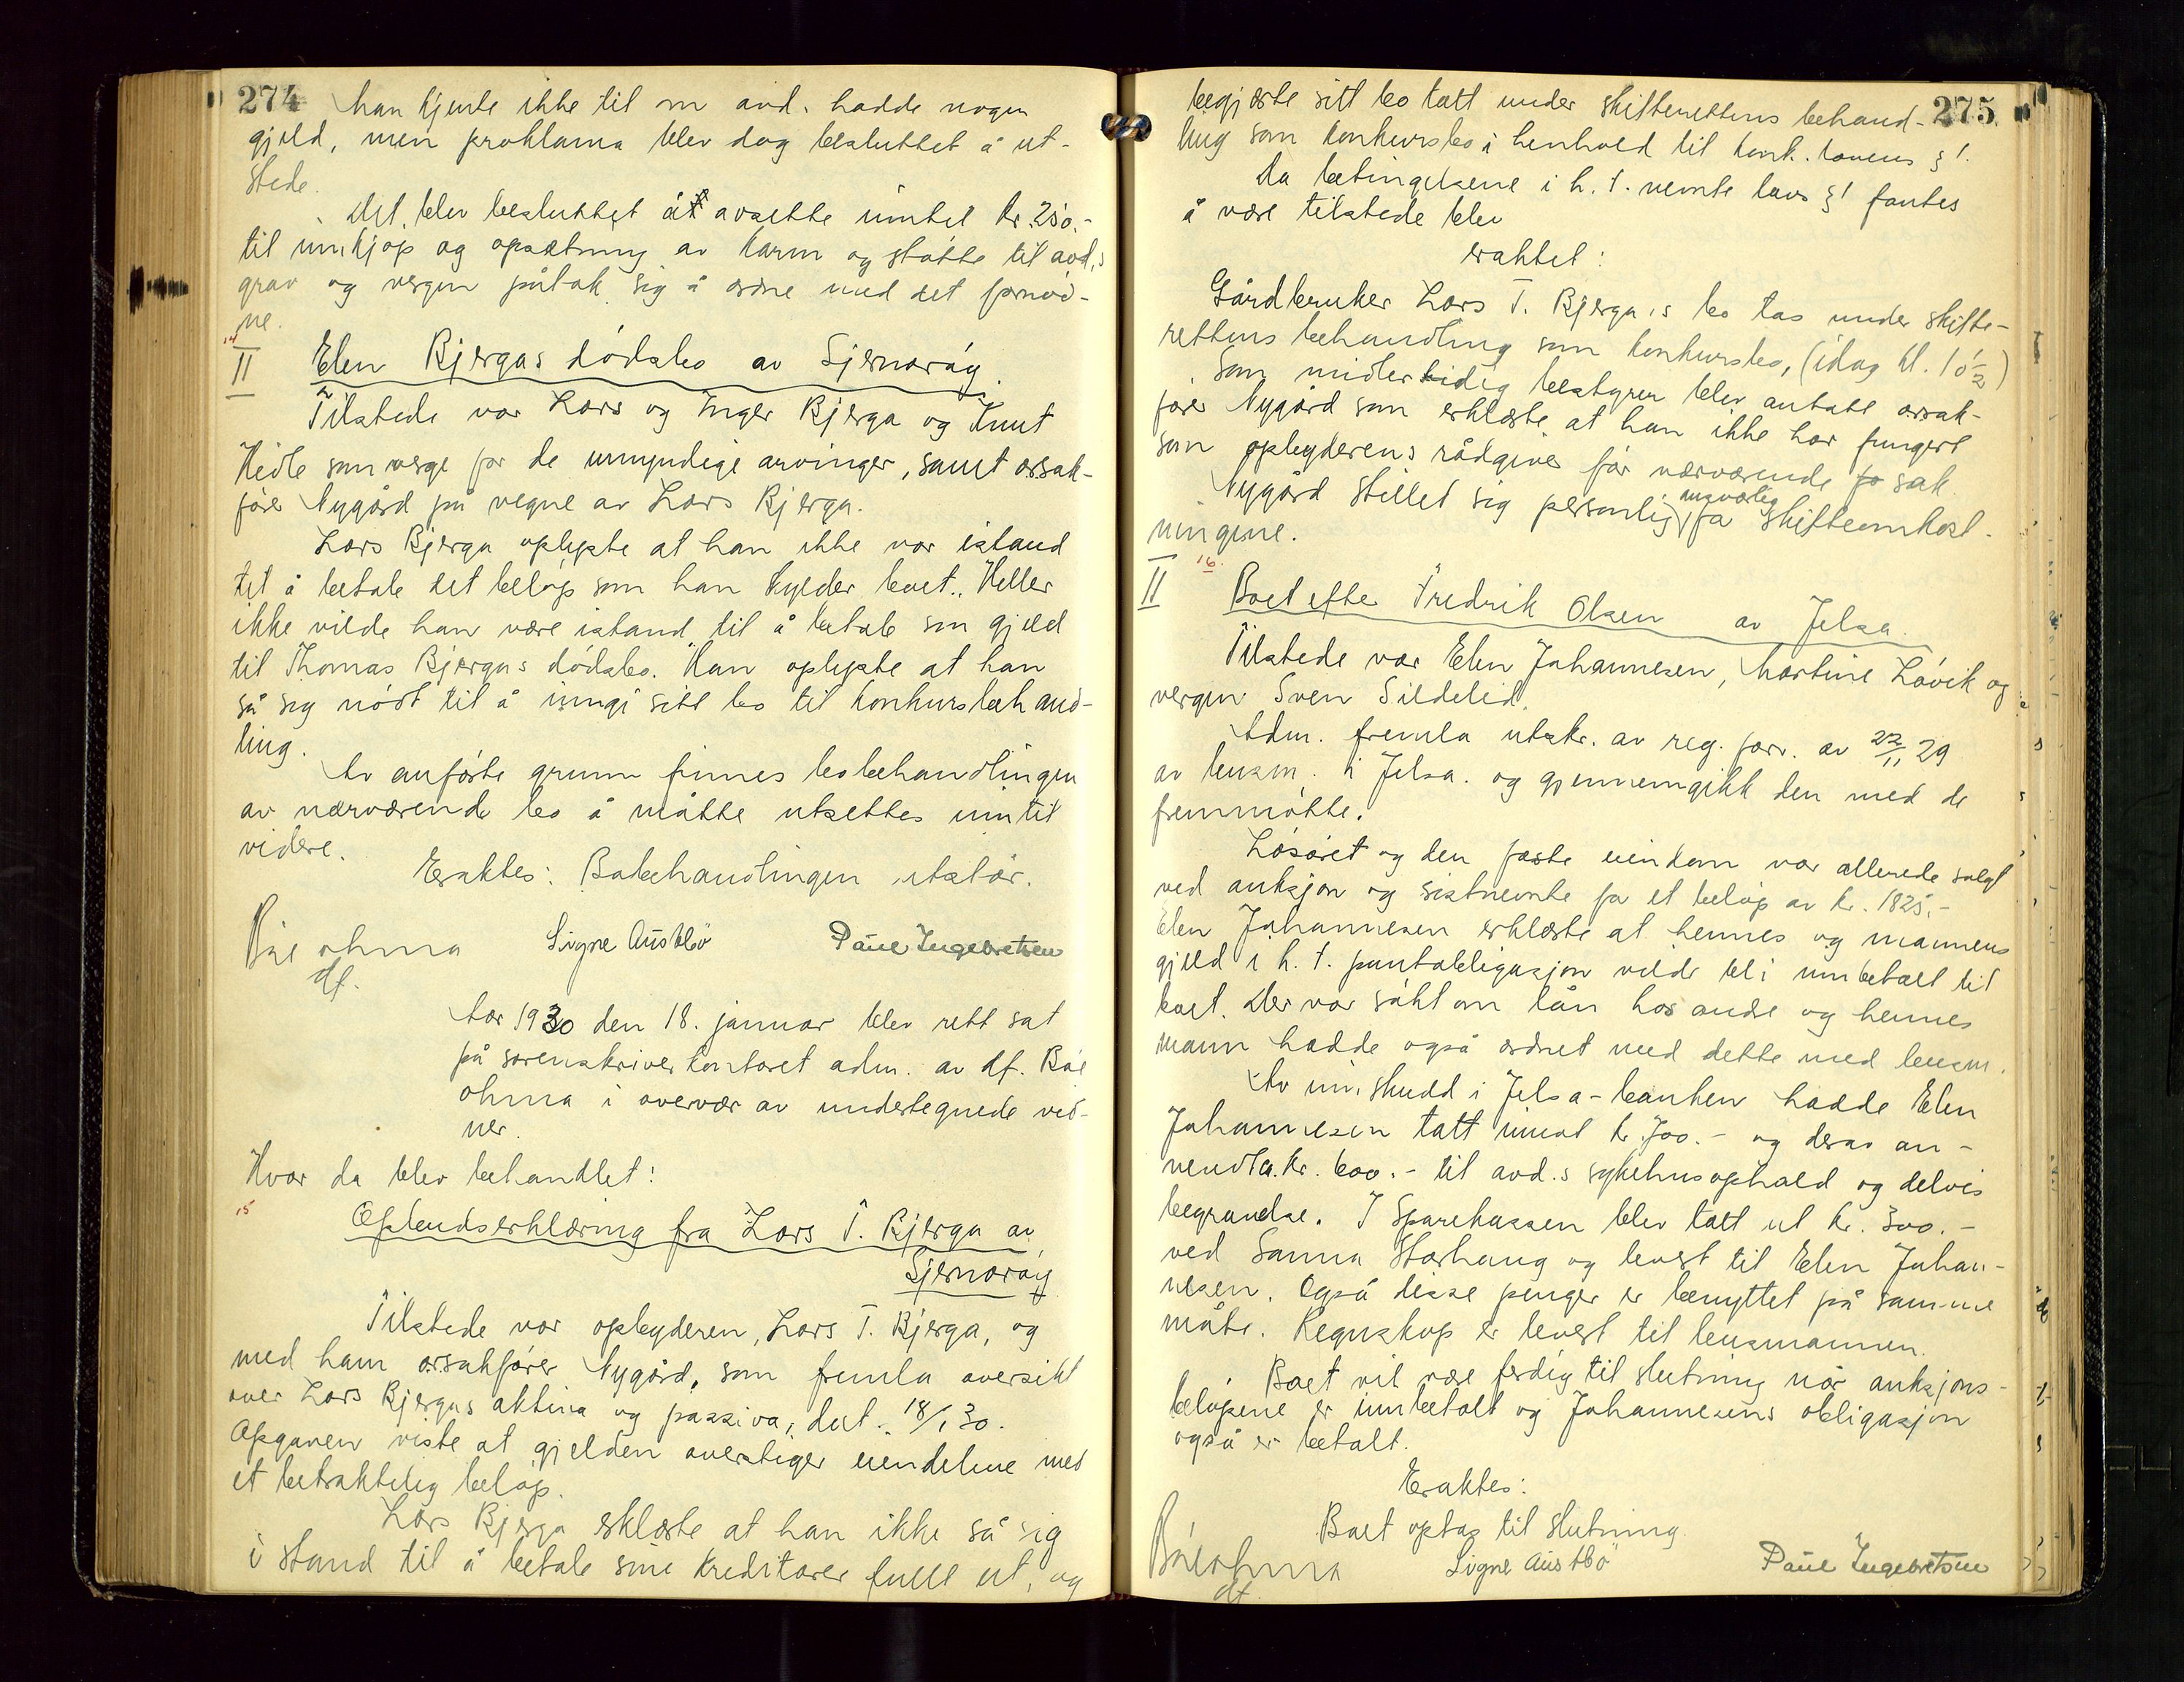 274
han kjente ikke til om avd. hadde nogen
gjeld, men proklama blev dog besluttet å ut-
stede.
Det blev besluttet å avsette inntil kr. 250.-
til innkjøp og opsætning av karm og støtte til avd.s
grav og vergen påtok sig å ordne med det fornød-
ne.
14
II Elen Bjergas dødsbo av Sjernarøy.
Tilstede var Lars og Inger Bjerga og Knut
Hidle som verge for de umyndige arvinger, samt o.r.sak-
fører Nygård på vegne av Lars Bjerga.
Lars Bjerga oplyste at han ikke var istand
til å betale det beløp som han skylder boet. Heller
ikke vilde han være istand til å betale sin gjeld
til Thomas Bjergas dødsbo. Han oplyste at han
så sig nødt til å inngi sitt bo til konkursbehand-
ling.
Av anførte grunn finnes bobehandlingen
av nærværende bo å måtte utsettes inntil
videre.
Eraktes: Bobehandlingen utstår.
Bøe ohma
df.
Signe Austbø
Paul Ingebretsen
Aar 1930 den 18. januar blev rett sat
på sorenskriverkontoret adm. av df. Bøe
ohma i overvær av undertegnede vid-
ner.
Hvor da blev behandlet:
15
Opbudserklæring fra Lars T. Bjerga av
Sjernarøy
Tilstede var opbyderen, Lars T. Bjerga, og
med ham o.r.sakfører Nygård, som fremla oversikt
over Lars Bjergas aktiva og passiva, dat. 18/1 30.
Opgaven viste at gjelden overstiger eiendelene med
et betraktelig beløp.
Lars Bjerga erklærte at han ikke så sig
i stand til å betale sine kreditorer fullt ut, og
275
begjærte sitt bo tatt under skifterettens behand-
ling som konkursbo i henhold til konk.lovens § 1.
Da betingelsene i h. t. nevnte lovs § 1 fantes
å være tilstede blev
eraktet:
Gårdbruker Lars T. Bjerga's bo tas under skifte-
rettens behandling som konkursbo, (idag kl. 10 1/2)
Som midlertidig bestyrer blev antatt o.r.sak-
fører Nygård som erklærte at han ikke har fungert
som opbyderens rådgiver før nærværende fo sak.
Nygård stillet sig personlig ansvarlig for skifteomkost-
ningene.
16.
II Boet efter Fredrik Olsen av Jelsa.
Tilstede var Elen Johannesen, Martine Løvik og
vergen Sven Sildelid.
Adm. fremla utskr. av reg. forr. av 22/11 29
av lensm. i Jelsa. og gjennemgikk den med de
fremmøtte.
Løsøret og den faste eiendom var allerede solgt
ved auksjon og sistnevnte for et beløp av kr. 1825.-
Elen Johannesen erklærte at hennes og mannens
gjeld i h. t. pantobligasjon vilde bli innbetalt til
boet. Der var søkt om lån hos andre og hennes
mann hadde også ordnet med dette med lensm.
Av innskudd i Jelsa-banken hadde Elen
Johannesen tatt imot kr. 700.- og derav an-
vendt ca. kr. 600.- til avd.s sykehusophold og delvis
begravelse. I Sparekassen blev tatt ut kr. 300.-
ved Sanna Storhaug og levert til Elen Johan-
nesen. Også disse penger er benyttet på samme
måte. Regnskap er levert til lensmannen.
Boet vil være ferdig til slutning når auksjons-
beløpene er innbetalt og Johannesens obligasjon
også er betalt.
Eraktes:
Boet optas til slutning.
Bøe ohma
df.
Signe Austbø
Paul Ingebretsen